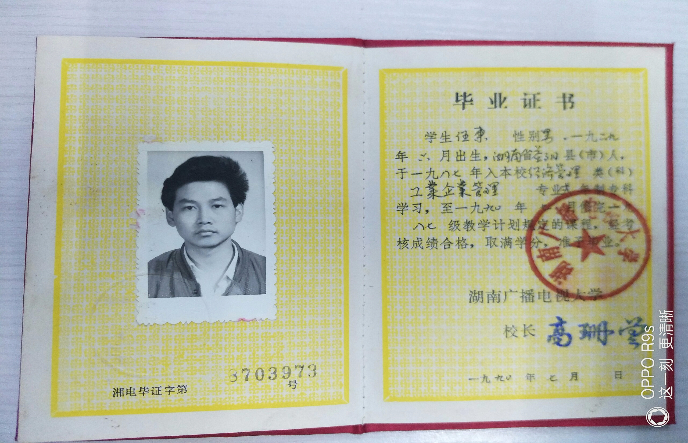 湘电毕证字第 8703973 号
毕业证书
学生伍東 性别男,一九六九
年 六 月出生,湖南省 县(市)人,
于一九八七年入本校经济管理 类(科)
工業企業管理 专业 年制专科
学习,至一九九〇年
八七 级教学计划规定的课程,经考
核成绩合格,取满学分,准予毕业。
湖南广播电视大学
校长
一九九〇 年 七 月 日
OPPO R9s
这一刻 更清晰